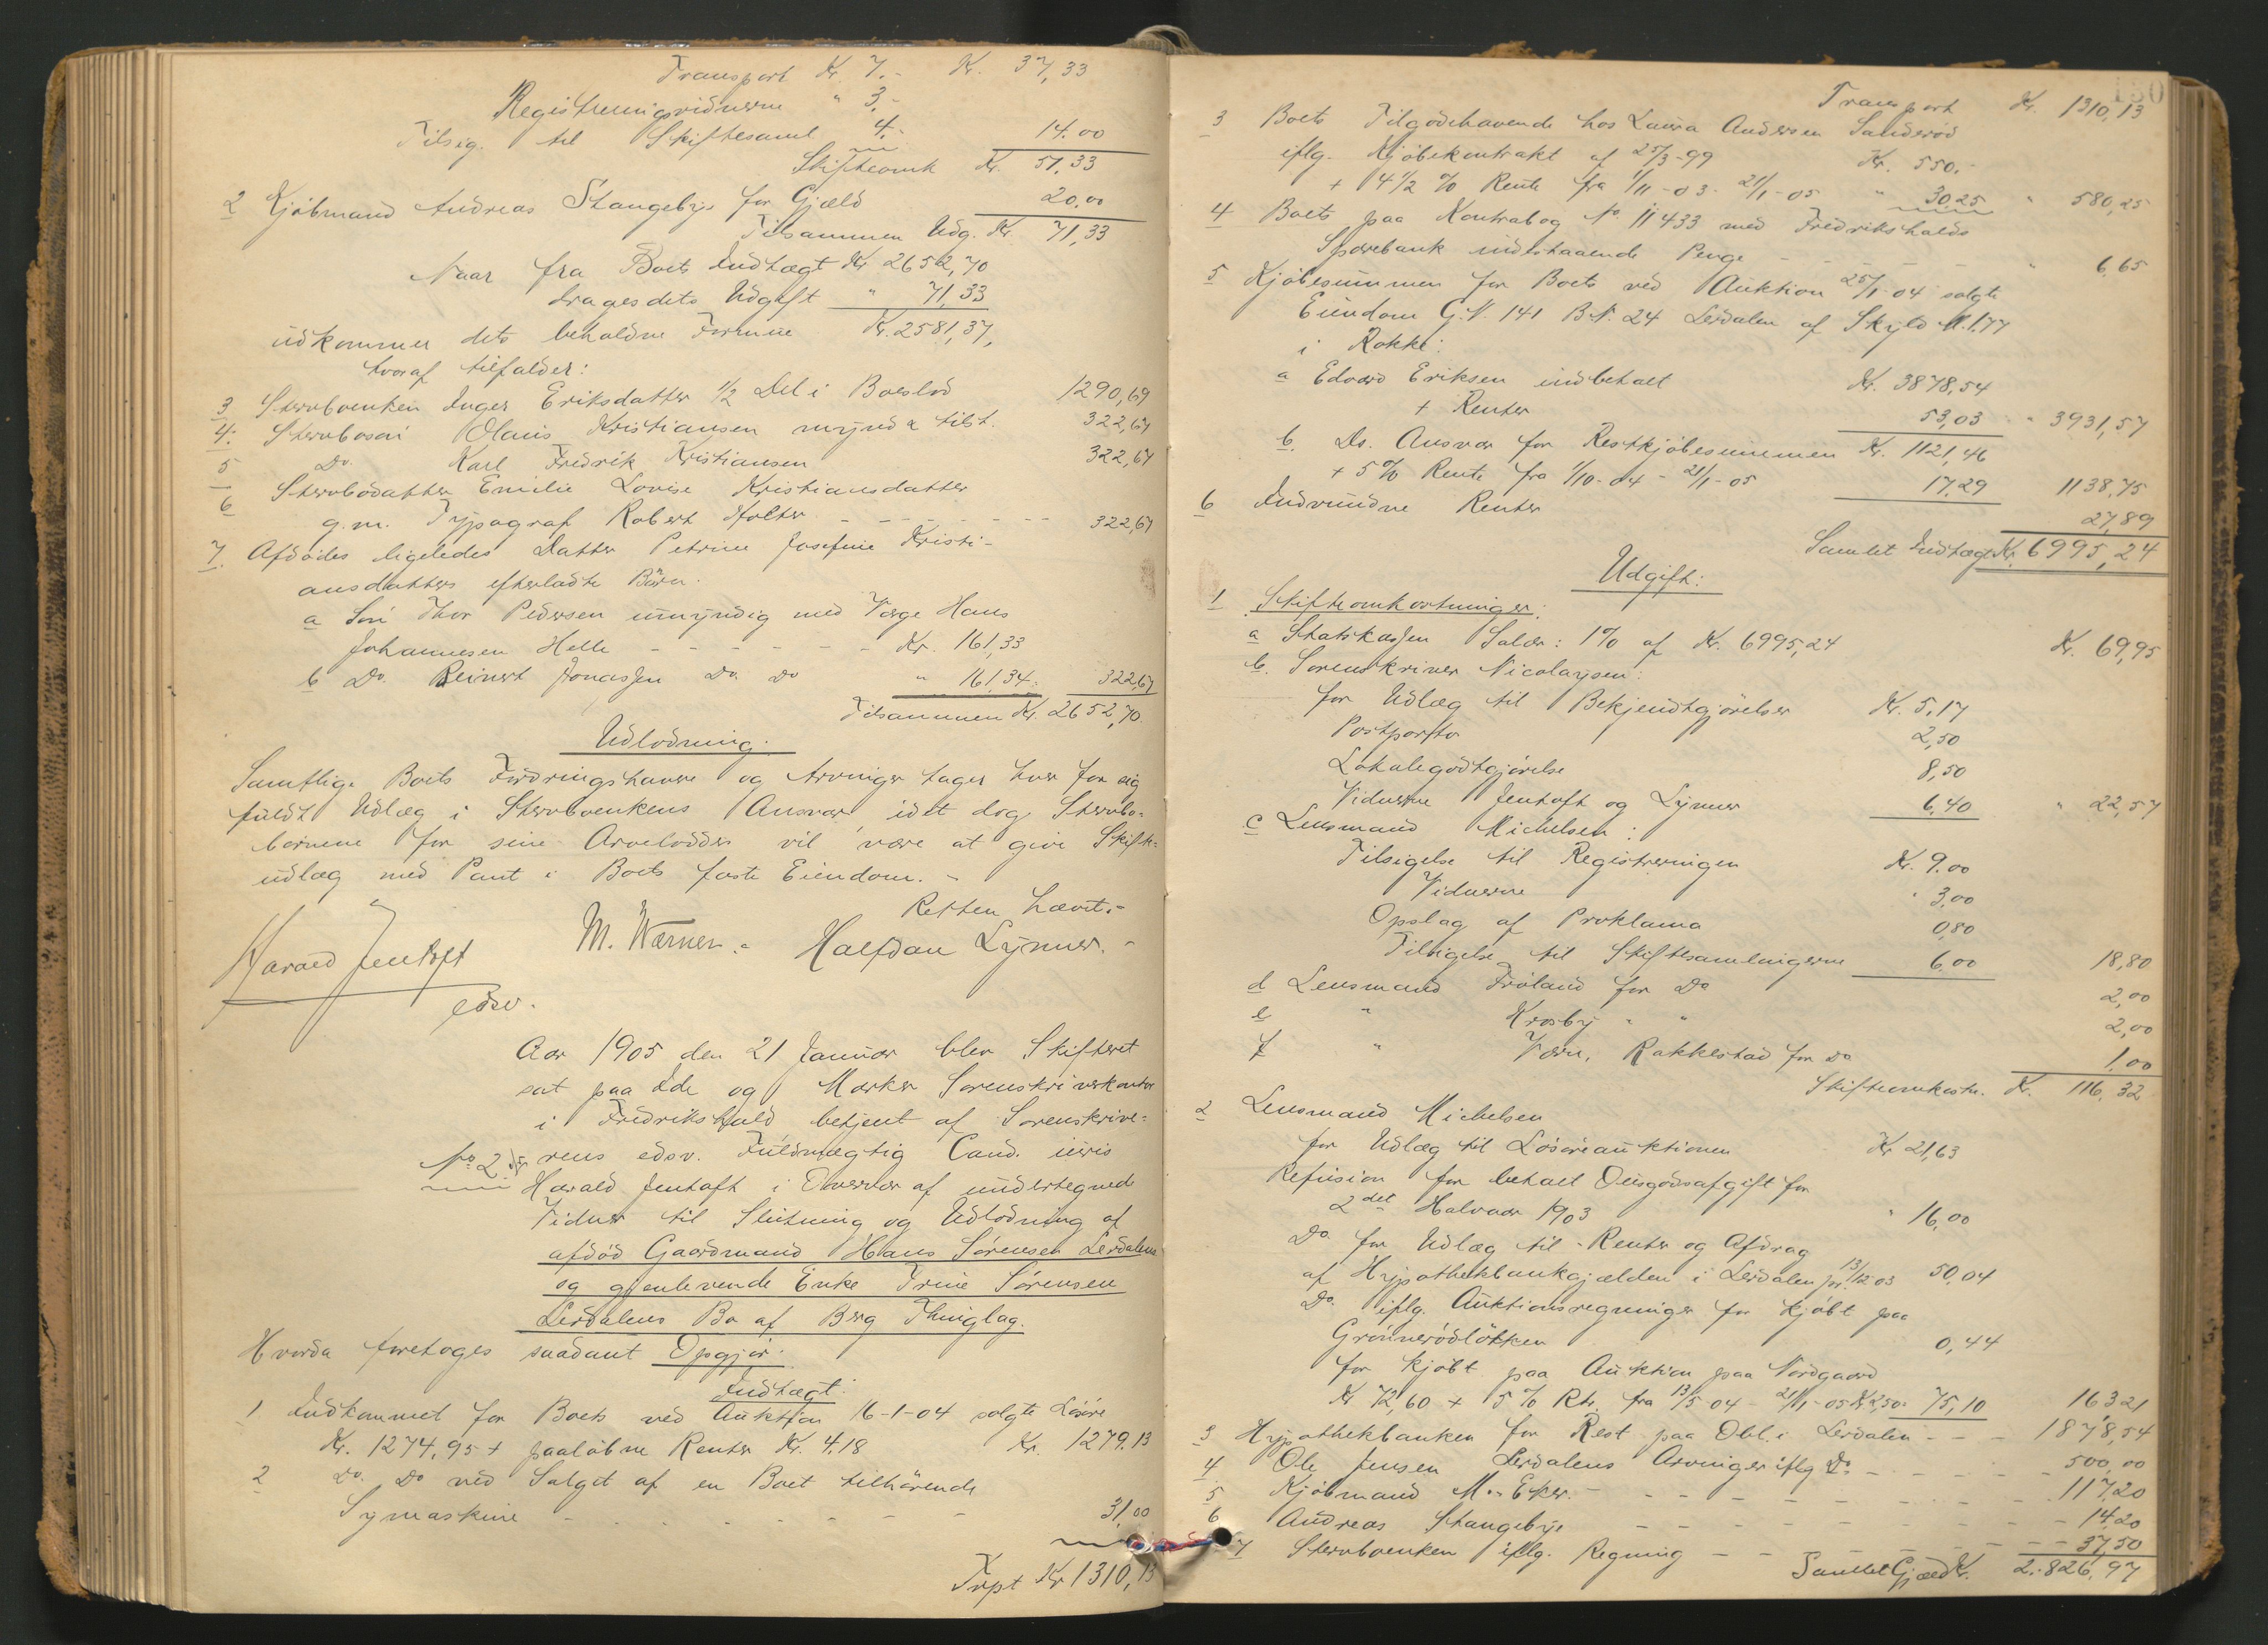 Transport Kr. 7.- Kr. 37,33
Registreringsvidnerne " 3,-
Tilsig. til Skiftesaml. 4.- 14.00
Skifteomk Kr. 51.33
2 Kjøbmand Andreas Stangebye for Gjæld 20.00
Tilsammen Udg. Kr. 71,33
Naar fra Boets Indtægt Kr 2652,70
drages dets Udgift " 71,33
udkommer dets beholdne Formue Kr. 2581,37,
hvoraf tilfalder:
3 Stervboenken Inger Eriksdatter 1/2 Del i Boeslod 1290,69
4. Stervbosøn Olaus Kristiansen mynd & tilst. 322,67
5 Do. Karl Fredrik Kristiansen 322,67
6 Stervbodatter Emilie Lovise Kristiansdatter
g.m. Typograf Robert Holter - - - - - - - 322,67
7. Afdødes ligeledes Datter Petrine Josefine Kristi-
ansdatters efterladte Børn.
a Søn Thor Pedersen umyndig med Værge Hans
Johannesen Helle - - - - - - Kr. 161,33
b Do. Reinert Jonassen Do. Do " 161,34. 322,67
Tilsammen Kr. 2652,70.
Udlodning.
Samtlige Boets Fordringshavere og Arvinger tager hver for sig
fuldt Udlæg i Stervboenkens Ansvar idet dog Stervbo-
børnene for sine Arvelodder vil være at give Skifte-
udlæg med Pant i Boets faste Eiendom. -
Retten hævet.-
Harald Jentoft M. Werner. Halfdan Lymer. -
edsv.
Aar 1905 den 21 Januar blev Skifteret
sat paa Ide og Marker Sorenskriverkontor
i Fredrikshald betjent af Sorenskrive-
rens edsv. Fuldmægtig Cand. iuris
No 2.
Harald Jentoft i Overvær af undertegnede
Vidner til Slutning og Udlodning af
afdød Gaardmand Hans Sørensen Lerdalens
og gjenlevende Enke Trine Sørensen
Lerdalens Bo af Berg Thinglag.
Hvorda foretoges saadant Opgjør:
Indtægt:
1 Indkommet for Boets ved Auktion 16-1-04 solgte Løsøre
Kr. 1274,95 + paaløbne Renter Kr. 4.18 Kr. 1279.13
2 Do. Do ved Salget af en Boet tilhørende
Symaskine - - - - - - - 31,00
Trpt Kr 1310,13
150
Transport Kr. 1310,13
3 Boets Tilgodehavende hos Laura Andersen Sanderød
iflg. Kjøbekontrakt af 25/3-99 Kr. 550.-
+ 4 1/2 % Rente fra 1/11-03 - 21/1-05 " 30,25 " 580,25
4 Boets paa Kontrabog No. 11433 med Fredrikshalds
Sparebank indestaaende Penge - - - - - " 6,65
5 Kjøbesummen for Boets ved Auktion 25/1-04 solgte
Eiendom G.N. 141 B.N. 24 Lerdalen af Skyld M. 1.77
i Rokke:
a Edvard Eriksen indbetalt Kr. 3878,54
+ Renter 53,03 " 3931,57
b. Ds. Ansvar for Restkjøbesummen Kr. 1121,46
+ 5% Rente fra 1/10-04 - 21/1-05 17,29 1138,75
6 Indvundne Renter 27,89
Samlet Indtægt Kr. 6995,24
Udgift:
1 Skifteomkostninger:
a Statskassen Salær: 1% af Kr. 6995,24 Kr. 69,95
b. Sorenskriver Nicolaysen:
for Udlæg til Bekjendtgjørelser Kr. 5,17
Postporto 2,50
Lokalegodtgjørelse 8,50
Vidnerne Jentoft og Lymer 6,40 " 22,57
c Lensmand Michelsen:
Tilsigelse til Registreringen Kr. 9.00
Vidnerne " 3,00
Opslag af Proklama 0,80
Tilsigelse til Skiftesamlingerne 6,00 18,80
d Lensmand Frøland for Do 2,00
e " Krosby " " 2,00
f " Værn, Rakkestad for Do 1,00
Skifteomkostn. Kr. 116,32
2 Lensmand Michelsen
for Udlæg til Løsøreauktionen Kr 21,63
Refusion for betalt Ousgodsafgift for
2det Halvaar 1903 " 16,00
Do. for Udlæg til Renter og Afdrag
af Hypothekbankgjælden i Lerdalen pr. 13/12 03 50,04
Do. iflg. Auktionsregninger for kjøbt paa
Grønnerødløkken 0,44
for kjøbt paa Auktion paa Nordgaard
Kr 72,60 + 5% Rte. fra 13/5 04 - 21/1-05 Kr 2,50. 75,10 163,21
3 Hypothekbanken for Rest paa Obl. i Lerdalen - - - 1878,54
4 Ole Jensen Lerdalens Arvinger iflg Do - - - - - 500,00
5 Kjøbmand M. Eker. - - - - - - - - - 117,20
6 Andreas Stangebye - - - - - - - - - 14,20
7 Stervboenken iflg. Regning - - - - - - 37,50
Samlet Gjæld Kr. 2.826,97